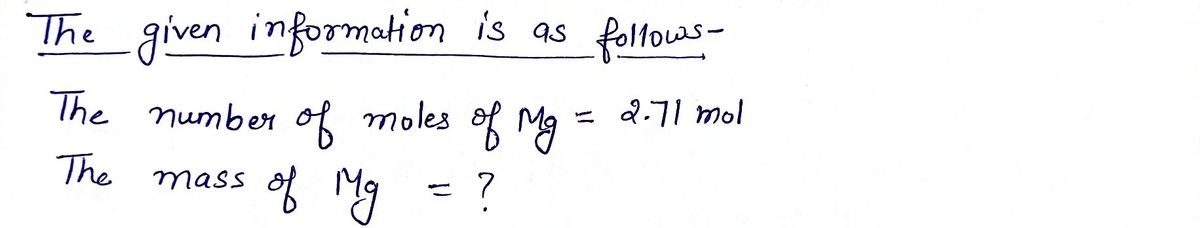 The given information is as follows-
The number of moles of Mg = 2.71 mol
The mass of Mg = ?